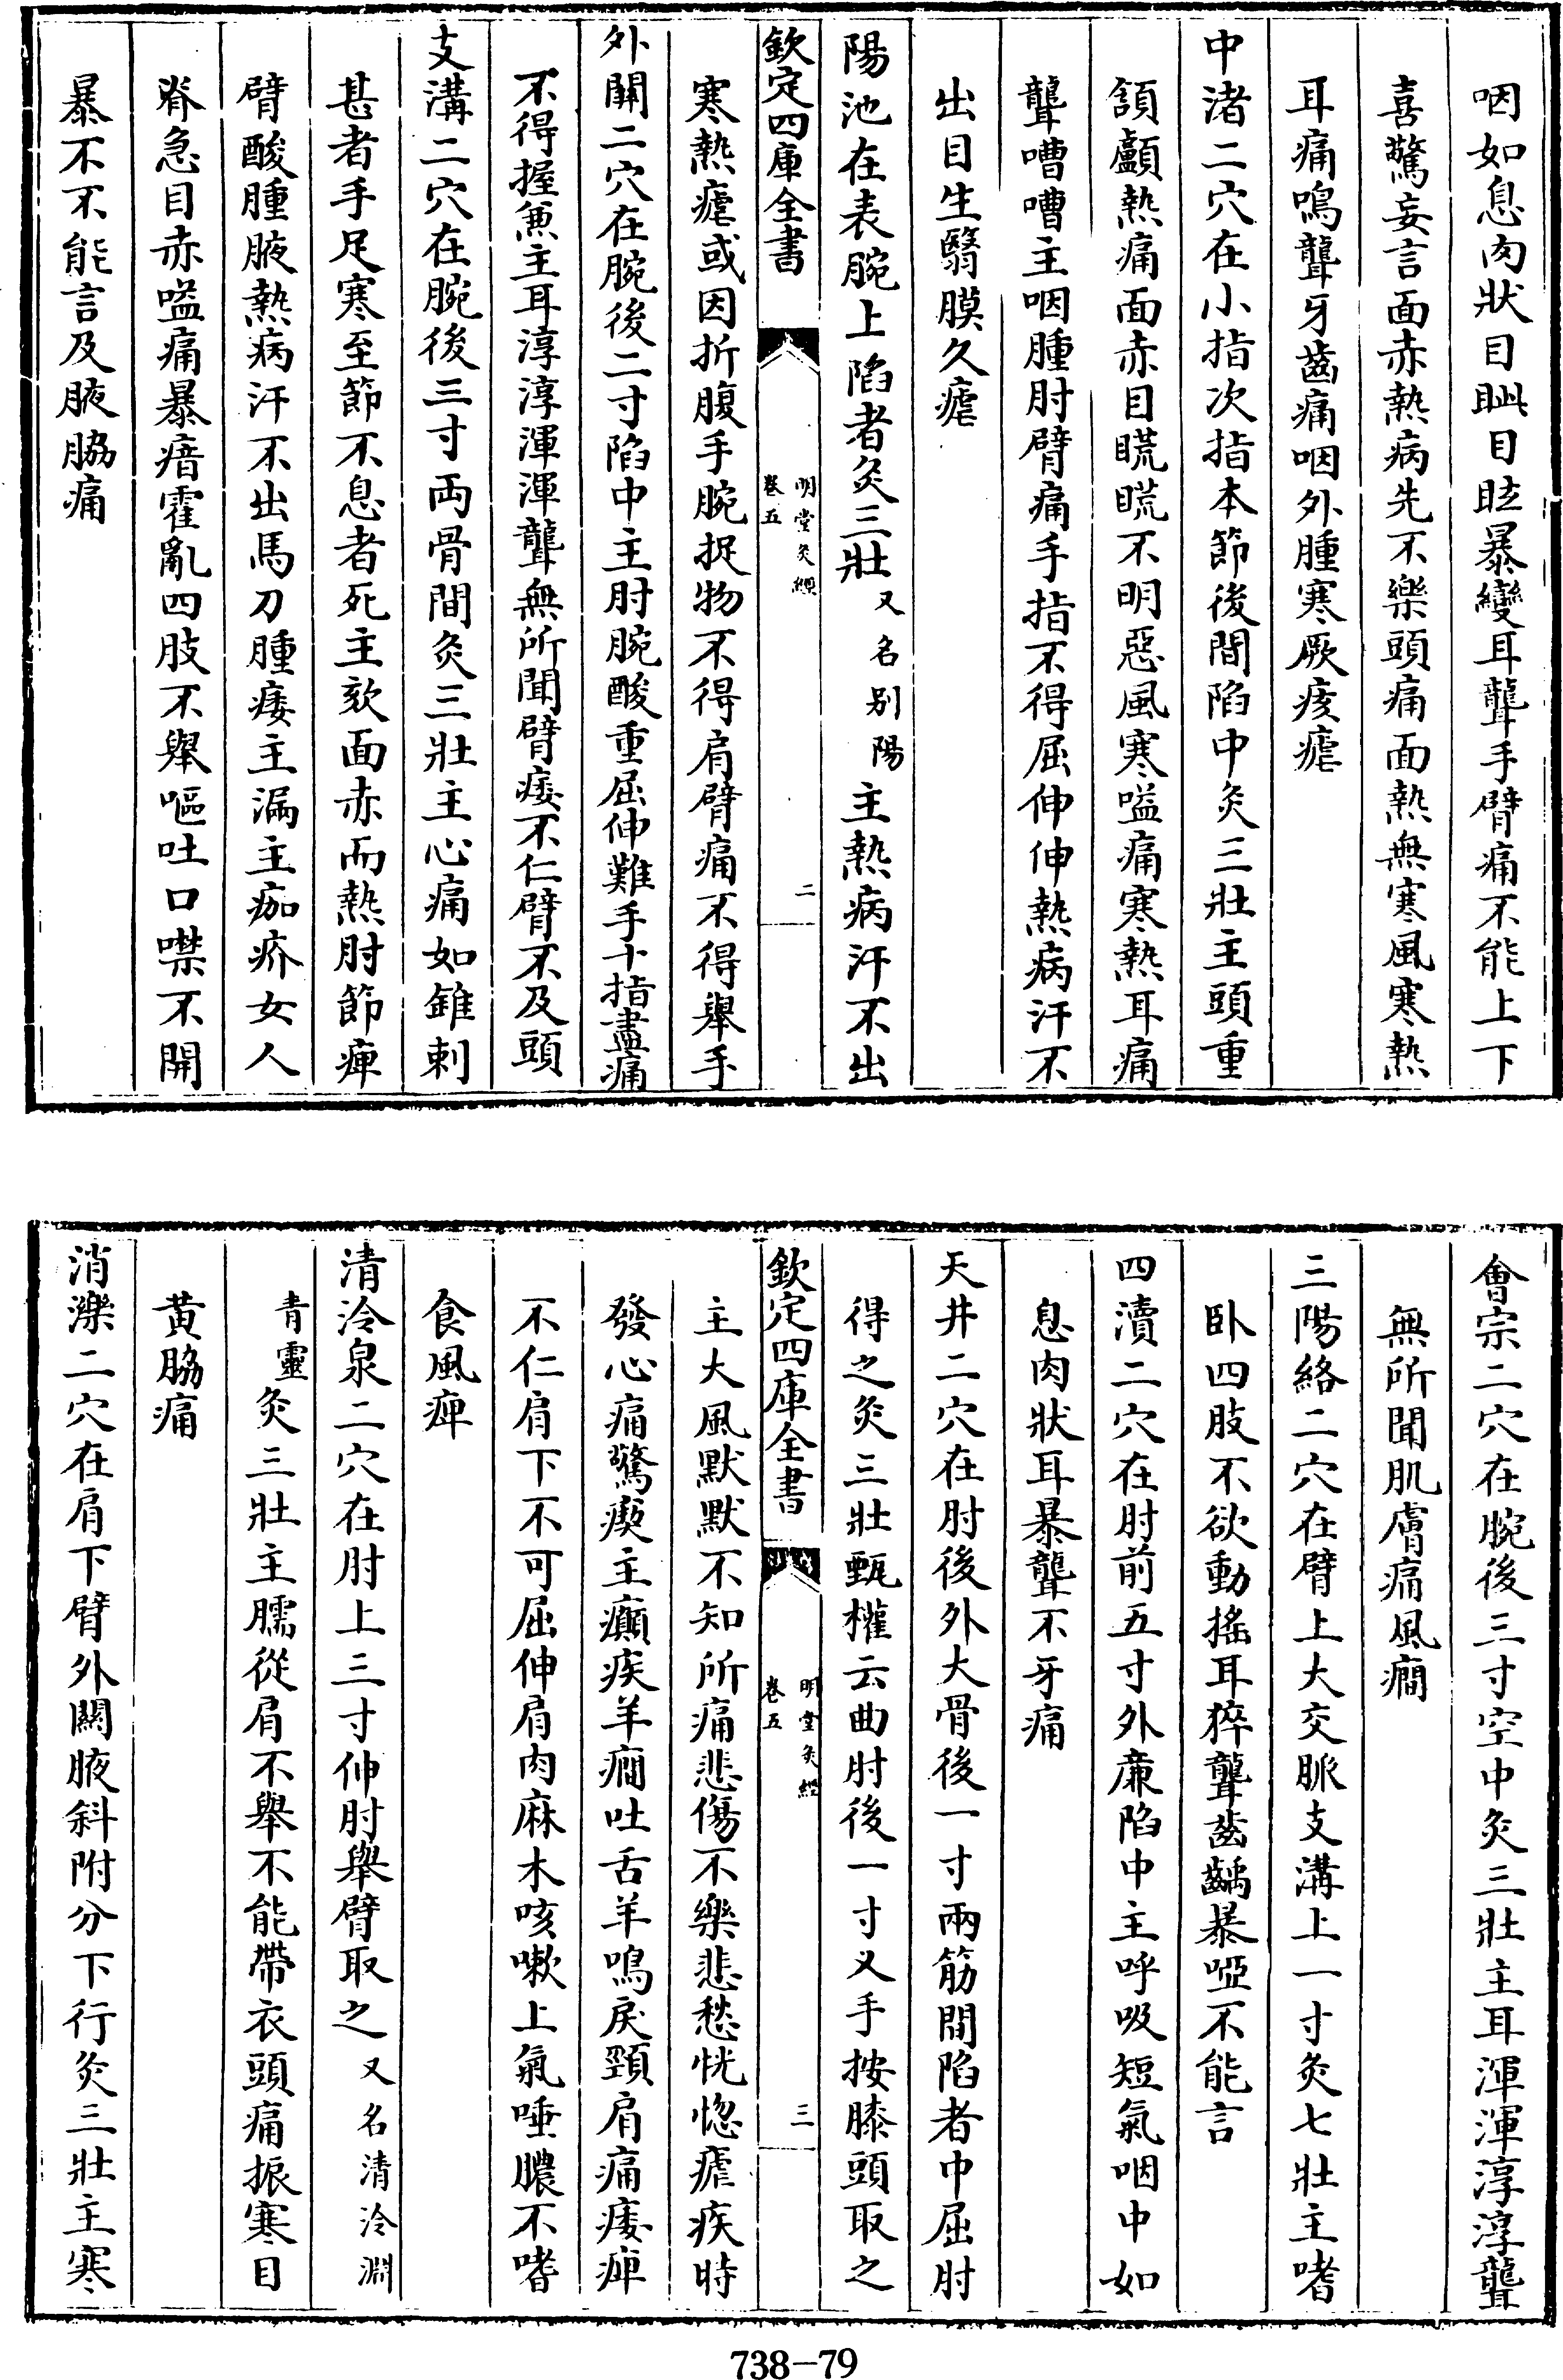 咽如息肉狀目眦目眩暴變耳聾手臂痛不能上下
喜驚妄言面赤熱病先不樂頭痛面熱無寒風寒熱
耳痛鳴聾牙齒痛咽外腫寒厥痎瘧
中渚二穴在小指次指本節後間陷中灸三壯主頭重
頷顱熱痛面赤目䀮䀮不明惡風寒嗌痛寒熱耳痛
聾嘈嘈主咽腫肘臂痛手指不得屈伸伸熱病汗不
出目生翳膜久瘧
陽池在表腕上陷者灸三壯又名别陽主熱病汗不出
欽定四庫全書
明堂灸經
卷五
二
寒熱瘧或因折腹手腕捉物不得肩臂痛不得舉手
外關二穴在腕後二寸陷中主肘腕酸重屈伸難手十指盡痛
不得握兼主耳淳淳渾渾聾無所聞臂痿不仁臂不及頭
支溝二穴在腕後三寸両骨間灸三壯主心痛如錐刺
甚者手足寒至節不息者死主欬面赤而熱肘節痺
臂酸腫腋熱病汗不出馬刀腫瘻主漏主痂疥女人
脊急目赤嗌痛暴瘖霍亂四肢不舉嘔吐口噤不開
暴不不能言及腋脇痛
會宗二穴在腕後三寸空中灸三壯主耳渾渾淳淳聾
無所聞肌膚痛風癎
三陽絡二穴在臂上大交脈支溝上一寸灸七壯主嗜
卧四肢不欲動搖耳猝聾齒齲暴啞不能言
四瀆二穴在肘前五寸外亷陷中主呼吸短氣咽中如
息肉狀耳暴聾不牙痛
天井二穴在肘後外大骨後一寸兩筋間陷者中屈肘
得之灸三壯甄權云曲肘後一寸叉手按膝頭取之
欽定四庫全書
明堂灸經
卷五
三
主大風默默不知所痛悲傷不樂悲愁恍惚瘧疾時
發心痛驚瘈主癲疾羊癎吐舌羊鳴戾頸肩痛痿痺
不仁肩下不可屈伸肩肉麻木咳嗽上氣唾膿不嗜
食風痺
清泠泉二穴在肘上三寸伸肘舉臂取之又名清泠淵
青靈灸三壯主臑從肩不舉不能帶衣頭痛振寒目
黄脇痛
消濼二穴在肩下臂外關腋斜附分下行灸三壯主寒
738-79